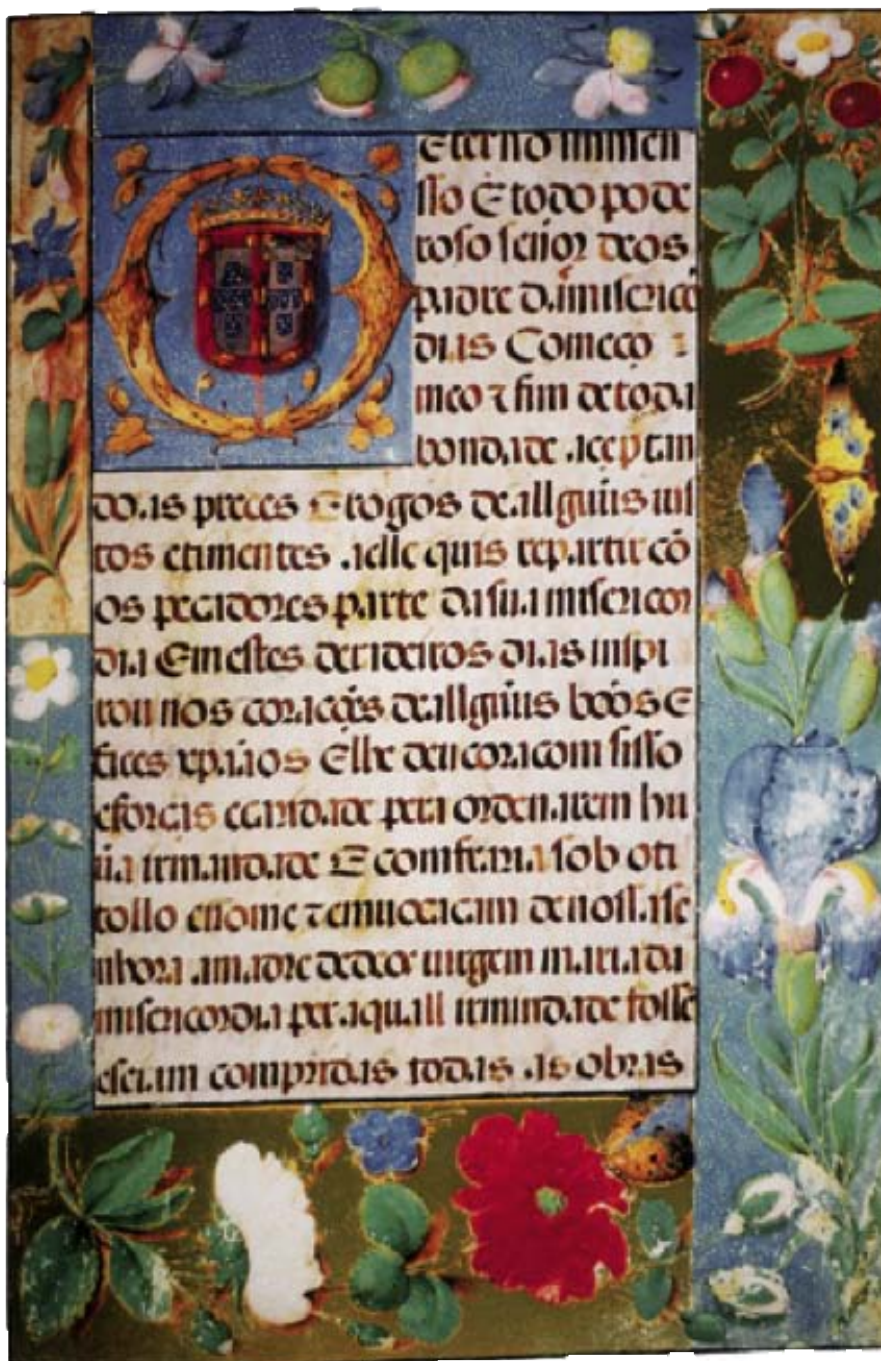 O Eterno immen
sso E todo pode
roso senor deos
padre da misericõ
dias Começo
meo τ fim de toda
bondade aceptan
do as preces E rogos de allguũs ius
tos e timentes a elle quis repartir cõ
os pecadores parte da sua misericor
dia Em estes derradeiros dias inspi
rou nos corações de allguũs boõs E
fiees xpãaos E lhe deu coracom sisso
eforças e caridade pera ordenarem hu
ũa irmandade E comfraria sob o ti
tollo e nome τ emuocacam de nossa se
nhora a madre de deos uirgem maria da
misericordia per a quall irmindade fosse
e seiam compridas todas as obras